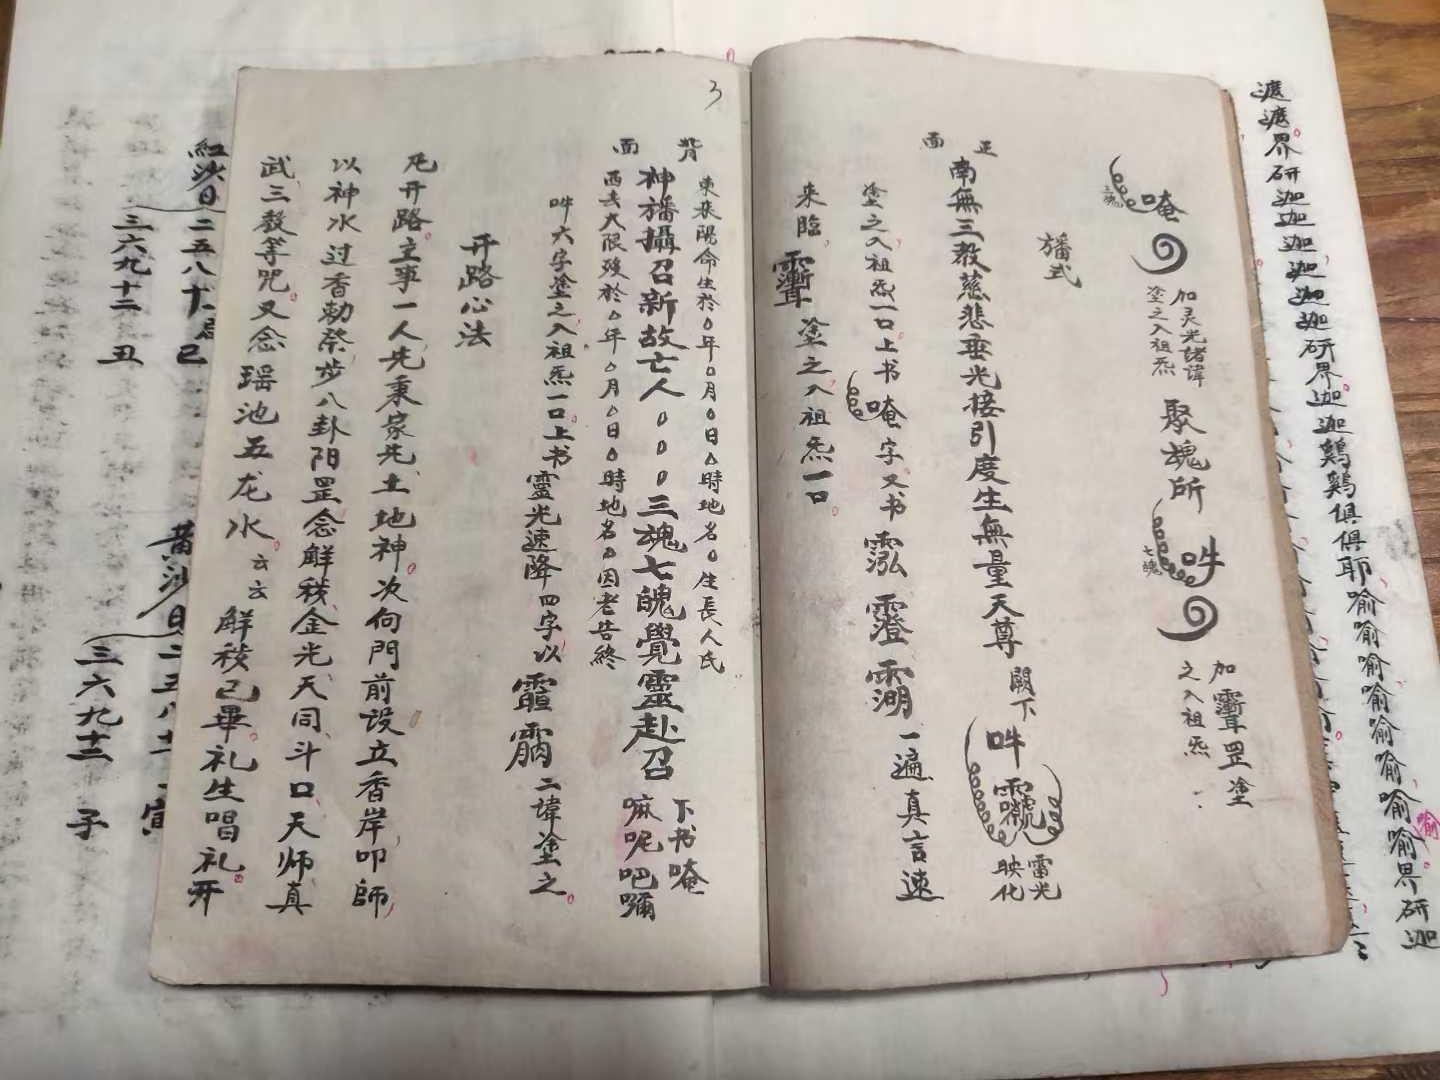 遮遮界研迦迦迦迦迦迦研界迦迦鷄鷄俱俱耶喻喻喻喻喻喻喻喻界研迦
喻
唵
三魂
加灵光諸諱
塗之入祖炁
聚魂所
吽
七魄
加
罡塗
之入祖炁
旛式
正面
南無三教慈悲垂光接引度生無量天尊
闕下
吽
雷光
映化
塗之入祖炁一口。上书唵字又书
一遍真言速
来臨
塗之入祖炁一口。
3
背面
東来陽命生於0年0月0日0時地名0生長人氏
神旛攝召新故亡人000三魂七魄覺靈赴召
下书唵
嘛呢吧嚩
西去大限殁於0年0月0日0時地名0因老告終
吽六字塗之入祖炁一口。上书靈光速降四字以
二諱塗之。
开路心法
凡开路。主事一人先秉家先土地神。次向門前设立香岸叩師
以神水过香勅祭步八卦阳罡念解秽金光天同斗口天师真
武三教等咒。又念瑶池五龙水。云云解秽已畢。礼生唱礼。开
紅沙日
二五八十一
巳
三六九十二
丑
黄沙日
二五八十一
寅
三六九十二
子